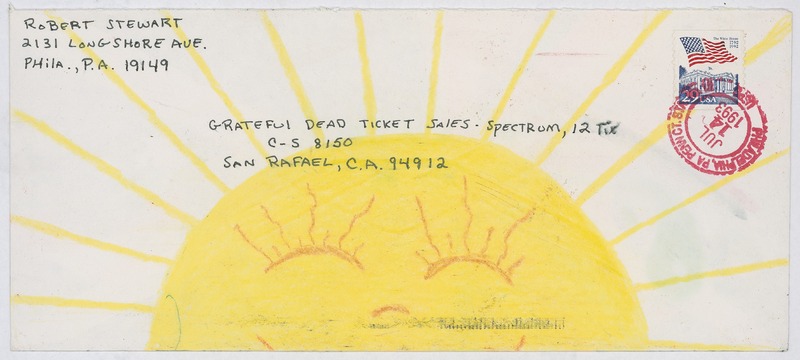 ROBERT STEWART
2131 LONGSHORE AVE.
PHILA., P.A. 19149
The White House
1792 1992
29 USA
JUL
14
1993
PHILADELPHIA PA
GRATEFUL DEAD TICKET SALES · SPECTRUM, 12 TIX
C-S 8150
SAN RAFAEL, C.A. 94912